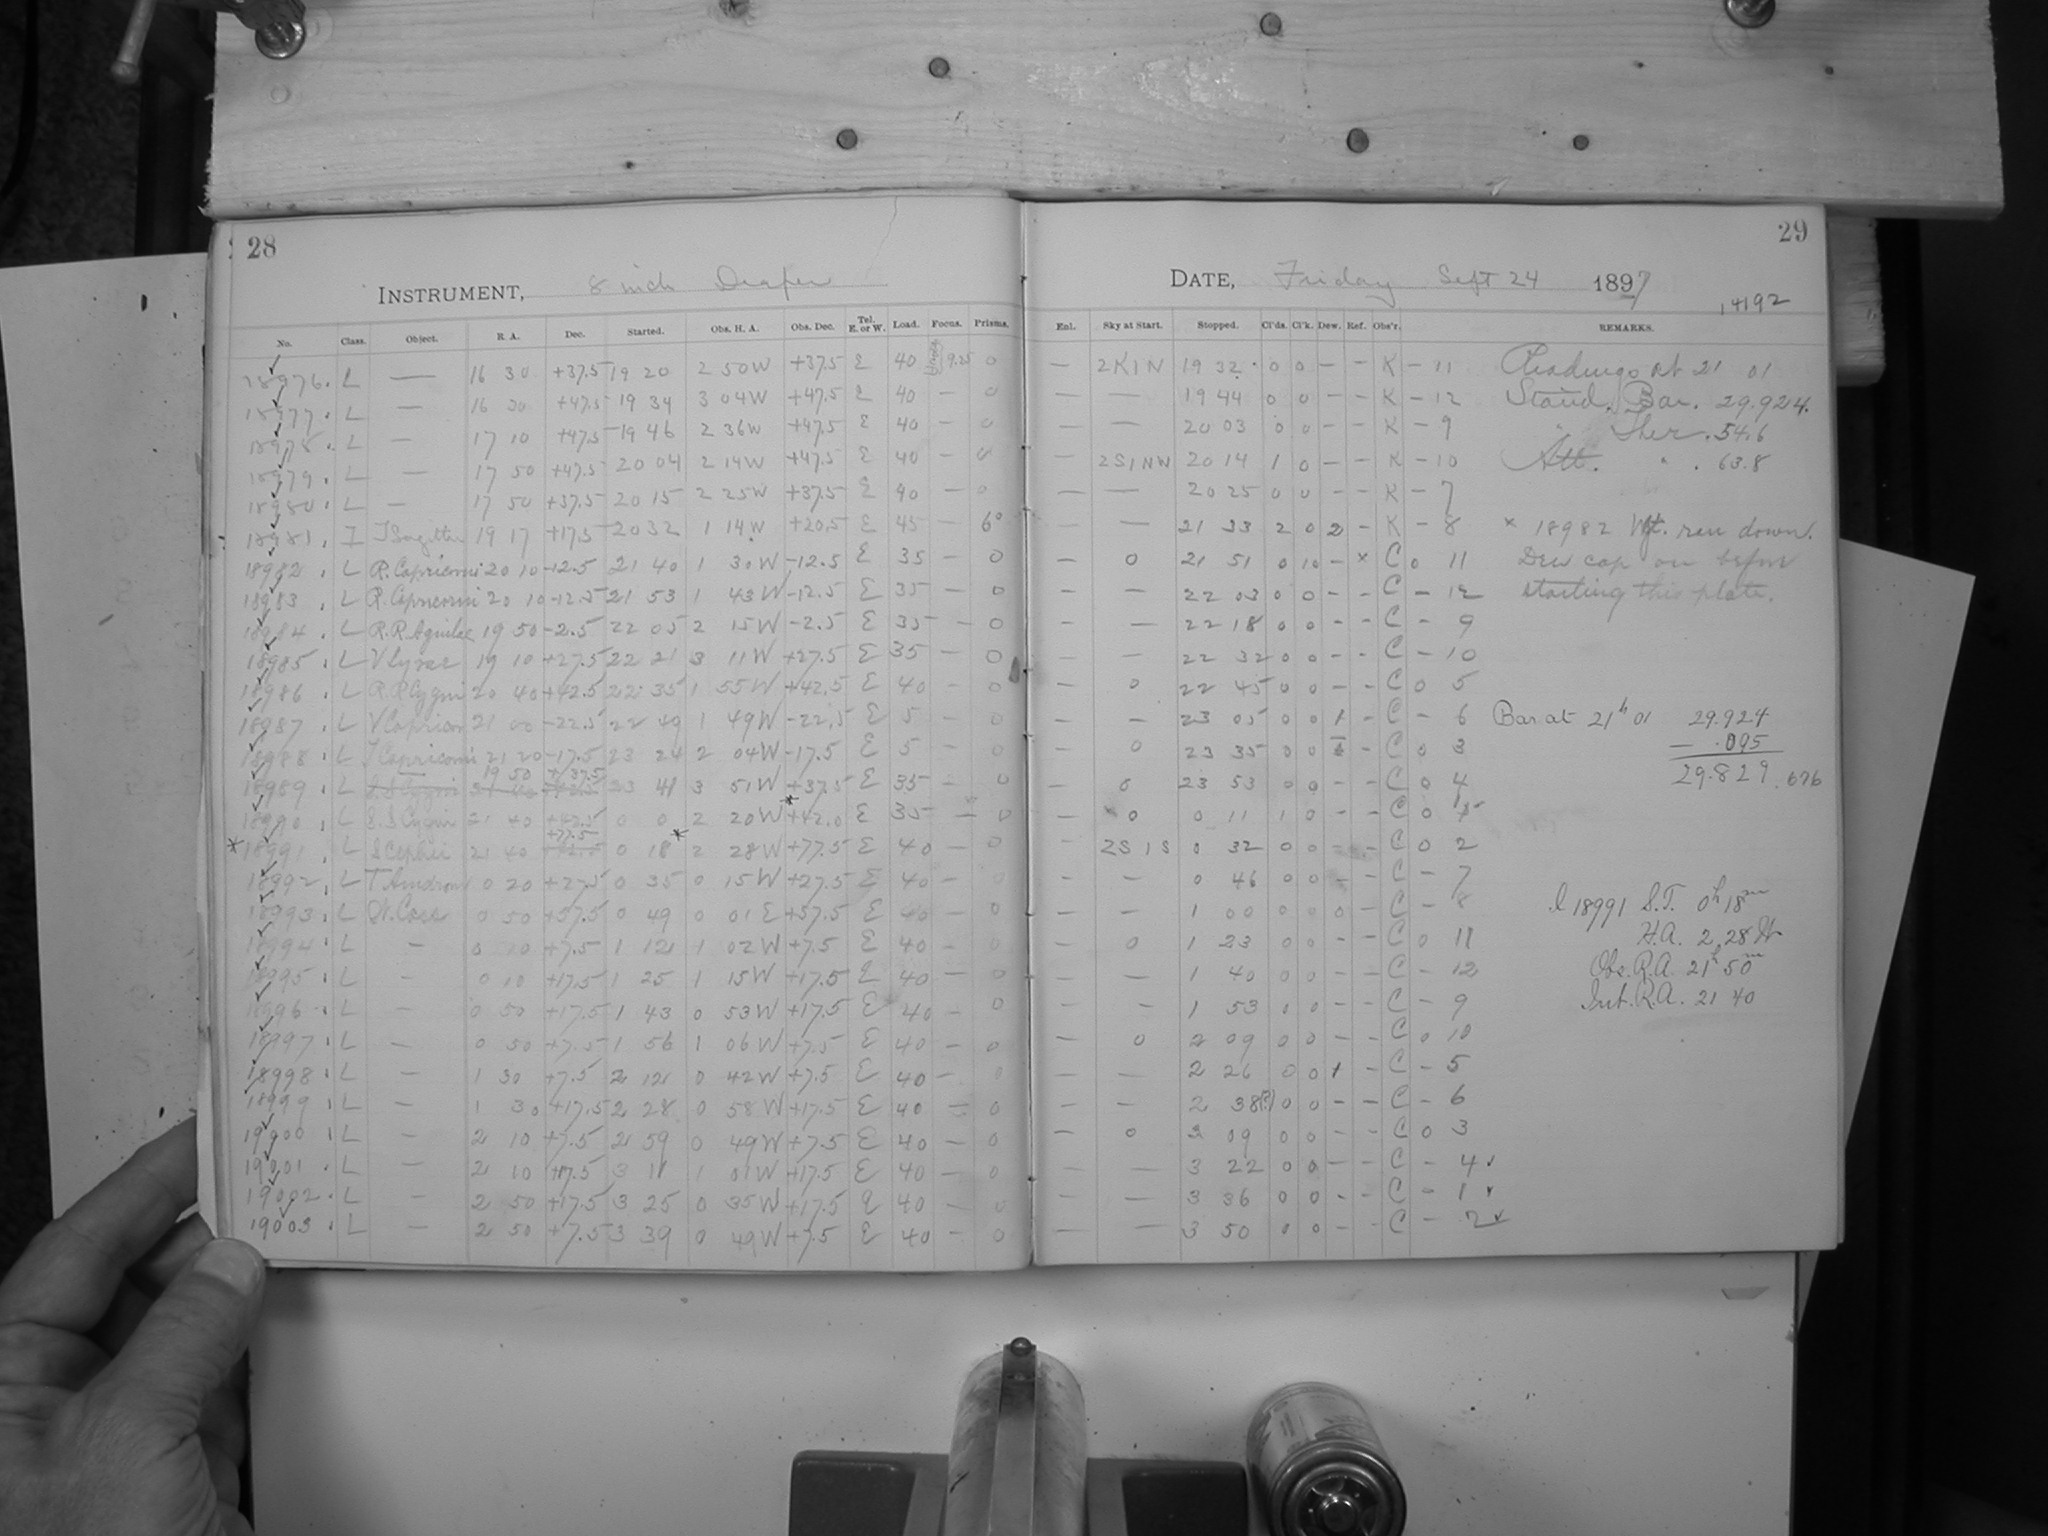 28
INSTRUMENT, 8 inch Draper
No. Class. Object. R. A. Dec. Started. Obs. H. A. Obs. Dec. Tel. E. or W. Load. Focus. Prisms.
18976. L — 16 30 +37.5 19 20 2 50W +37.5 E 40 9.25 0
18977. L — 16 30 +47.5 19 34 3 04W +47.5 E 40 — 0
18978. L — 17 10 +47.5 19 46 2 36W +47.5 E 40 — 0
18979. L — 17 50 +47.5 20 04 2 14W +47.5 E 40 — 0
18980. L — 17 50 +37.5 20 15 2 25W +37.5 E 40 — 0
18981. I T Sagittae 19 17 +17.5 20 32 1 14W +20.5 E 45 — 6°
18982. L R. Capricorni 20 10 -12.5 21 40 1 30W -12.5 E 35 — 0
18983. L R. Capricorni 20 10 -12.5 21 53 1 43W -12.5 E 35 — 0
18984. L R.R. Aquilae 19 50 -2.5 22 05 2 15W -2.5 E 35 — 0
18985. L V Lyrae 19 10 +27.5 22 21 3 11W +27.5 E 35 — 0
18986. L R.R Cygni 20 40 +42.5 22 35 1 55W +42.5 E 40 — 0
18987. L V Capricor 21 00 -22.5 22 49 1 49W -22.5 E 5 — 0
18988. L T Capricorni 21 20 -17.5 23 24 2 04W -17.5 E 5 — 0
19 50 +37.5
18989. L S.S Cygni 21 40 +42.5 23 41 3 51W +37.5 E 35 — 0
18990. L S.S Cygni 21 40 +42.5 0 0 2 20W* +42.0 E 35 — 0
+77.5
*18991. L S Cephei 21 40 0 18* 2 28W +77.5 E 40 — 0
18992. L T Androm 0 20 +27.5 0 35 0 15W +27.5 E 40 —
18993. L W. Cass 0 50 +57.5 0 49 0 01 E +57.5 E 40 — 0
18994. L — 0 10 +7.5 1 12 1 02W +7.5 E 40 — 0
18995. L — 0 10 +17.5 1 25 1 15W +17.5 E 40 — 0
18996. L — 0 50 +17.5 1 43 0 53W +17.5 E 40 — 0
18997. L — 0 50 +7.5 1 56 1 06W +7.5 E 40 — 0
18998. L — 1 30 +7.5 2 12 0 42W +7.5 E 40 — 0
18999. L — 1 30 +17.5 2 28 0 58W +17.5 E 40 — 0
19000. L — 2 10 +7.5 2 59 0 49W +7.5 E 40 — 0
19001. L — 2 10 +17.5 3 11 1 01W +17.5 E 40 — 0
19002. L — 2 50 +17.5 3 25 0 35W +17.5 E 40 — 0
19003. L — 2 50 +7.5 3 39 0 49W +7.5 E 40 — 0
29
DATE, Friday Sept 24 1897
14192
Enl. Sky at Start. Stopped. Cl'ds. Cl'k. Dew. Ref. Obs'r. REMARKS.
— 2K1N 19 32 0 0 — — K — 11 Readings at 21 01
— — 19 44 0 0 — — K — 12 Stand. Bar. 29.924.
— — 20 03 0 0 — — K — 9 " Ther. 54.6
— 2S1NW 20 14 1 0 — — K — 10 Att. " . 63.8
— — 20 25 0 0 — — K — 7
— — 21 33 2 0 2 — K — 8 × 18982 Wt. run down.
— 0 21 51 0 10 — × C 0 11 Dew cap on before
— — 22 03 0 0 — — C — 12 starting this plate.
— — 22 18 0 0 — — C — 9
— — 22 32 0 0 — — C — 10
— 0 22 45 0 0 — — C 0 5
— — 23 05 0 0 1 — C — 6 Bar at 21h 01 29.924
— 0 23 35 0 0 — C 0 3 — .095
— 0 23 53 0 0 — — C 0 4 29.829 .676
— 0 0 11 1 0 — — C 0 1
— 2S1S 0 32 0 0 — — C 0 2
— — 0 46 0 0 — — C — 7
— — 1 00 0 0 0 — C — 8 18991 S.T. 0h 18m
— 0 1 23 0 0 — — C 0 11 H.A. 2 28 W
— — 1 40 0 0 — — C — 12 Obs. R.A. 21h 50m
— — 1 53 0 0 — — C — 9 Int. R.A. 21 40
— 0 2 09 0 0 — — C 0 10
— — 2 26 0 0 1 — C — 5
— — 2 38(?) 0 0 — — C — 6
— 0 3 09 0 0 — — C 0 3
— — 3 22 0 0 — — C — 4
— — 3 36 0 0 — — C — 1
— — 3 50 0 0 — — C — 2